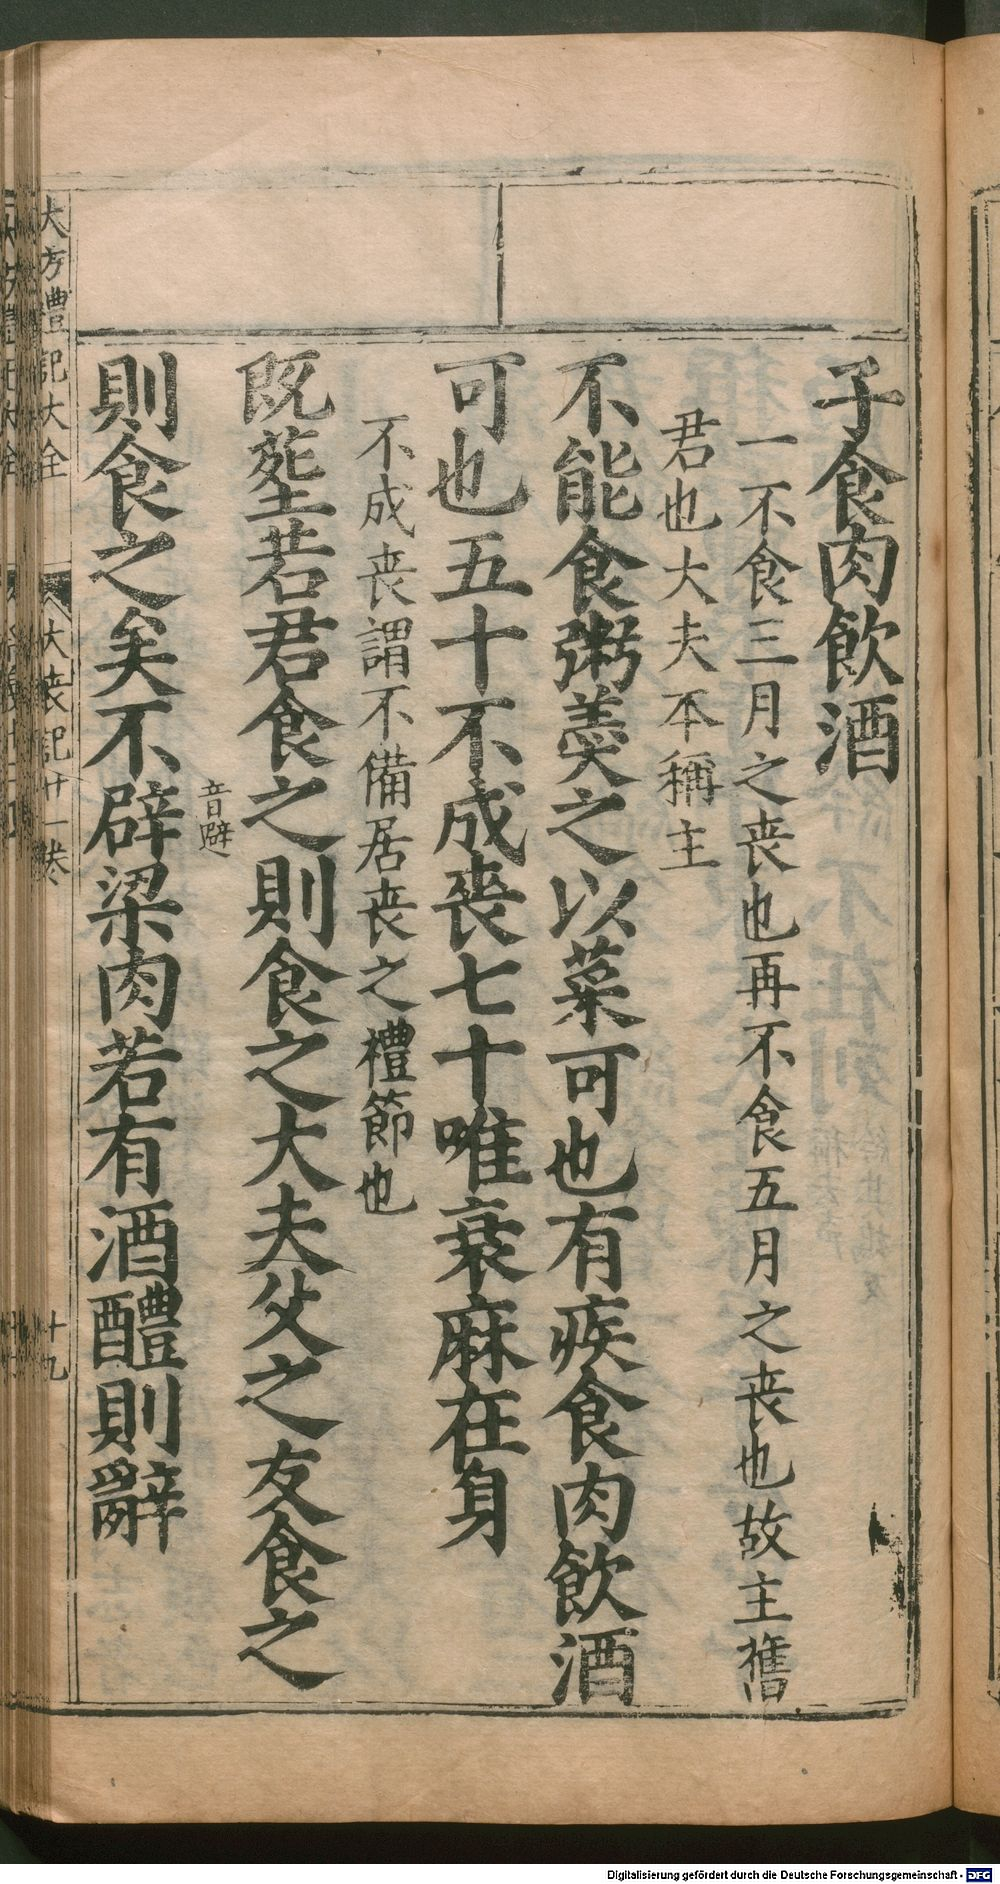 子食肉飲酒
一不食三月之丧也再不食五月之丧也故主舊
君也大夫本稱主
不能食粥羮之以菜可也有疾食肉飲酒
可也五十不成喪七十唯衰麻在身
不成丧謂不備居丧之禮節也
既塟若君食之則食之大夫父之友食之
則食之矣不辟梁肉若有酒醴則辭
音避
大方禮記大全
大丧記十一卷
十九
Digitalisierung gefördert durch die Deutsche Forschungsgemeinschaft - DFG